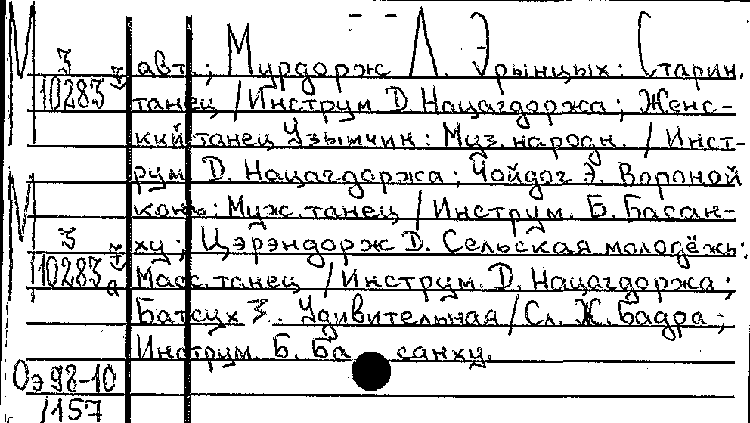 М З 10283 авт.; Мурдорж Л. Эрынцых: Старин.
танец / Инструм. Д. Нацагдоржа; Женс-
кий танец Узымчин: Муз. народн. / Инст-
рум. Д. Нацагдоржа; Чойдог Э. Вороной
конь: Муж. танец / Инструм. Б. Басан-
М З 10283 ху; Цэрэндорж Д. Сельская молодёжь:
Масс. танец / Инструм. Д. Нацагдоржа;
Батсух З. Удивительная / Сл. Ж. Бадра;
Инструм. Б. Басанху.
Оэ 98-10
/157